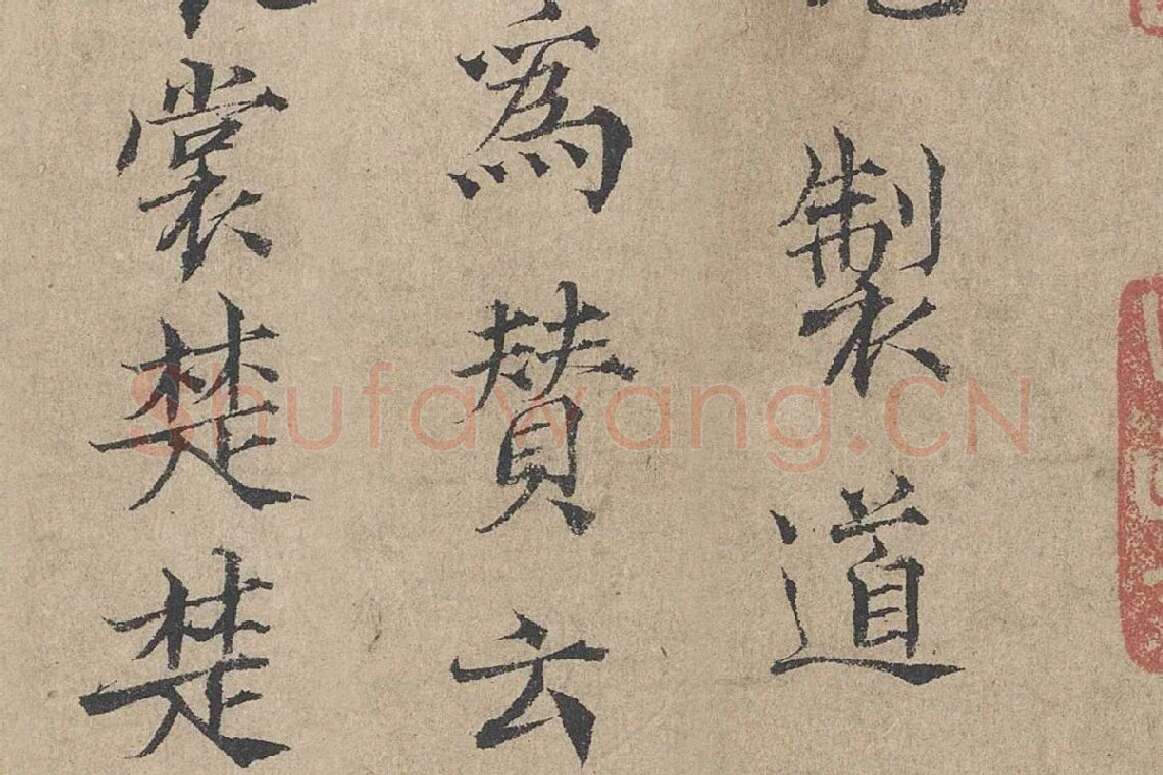 製道
為贊云
裳楚楚
Shufawang.CN